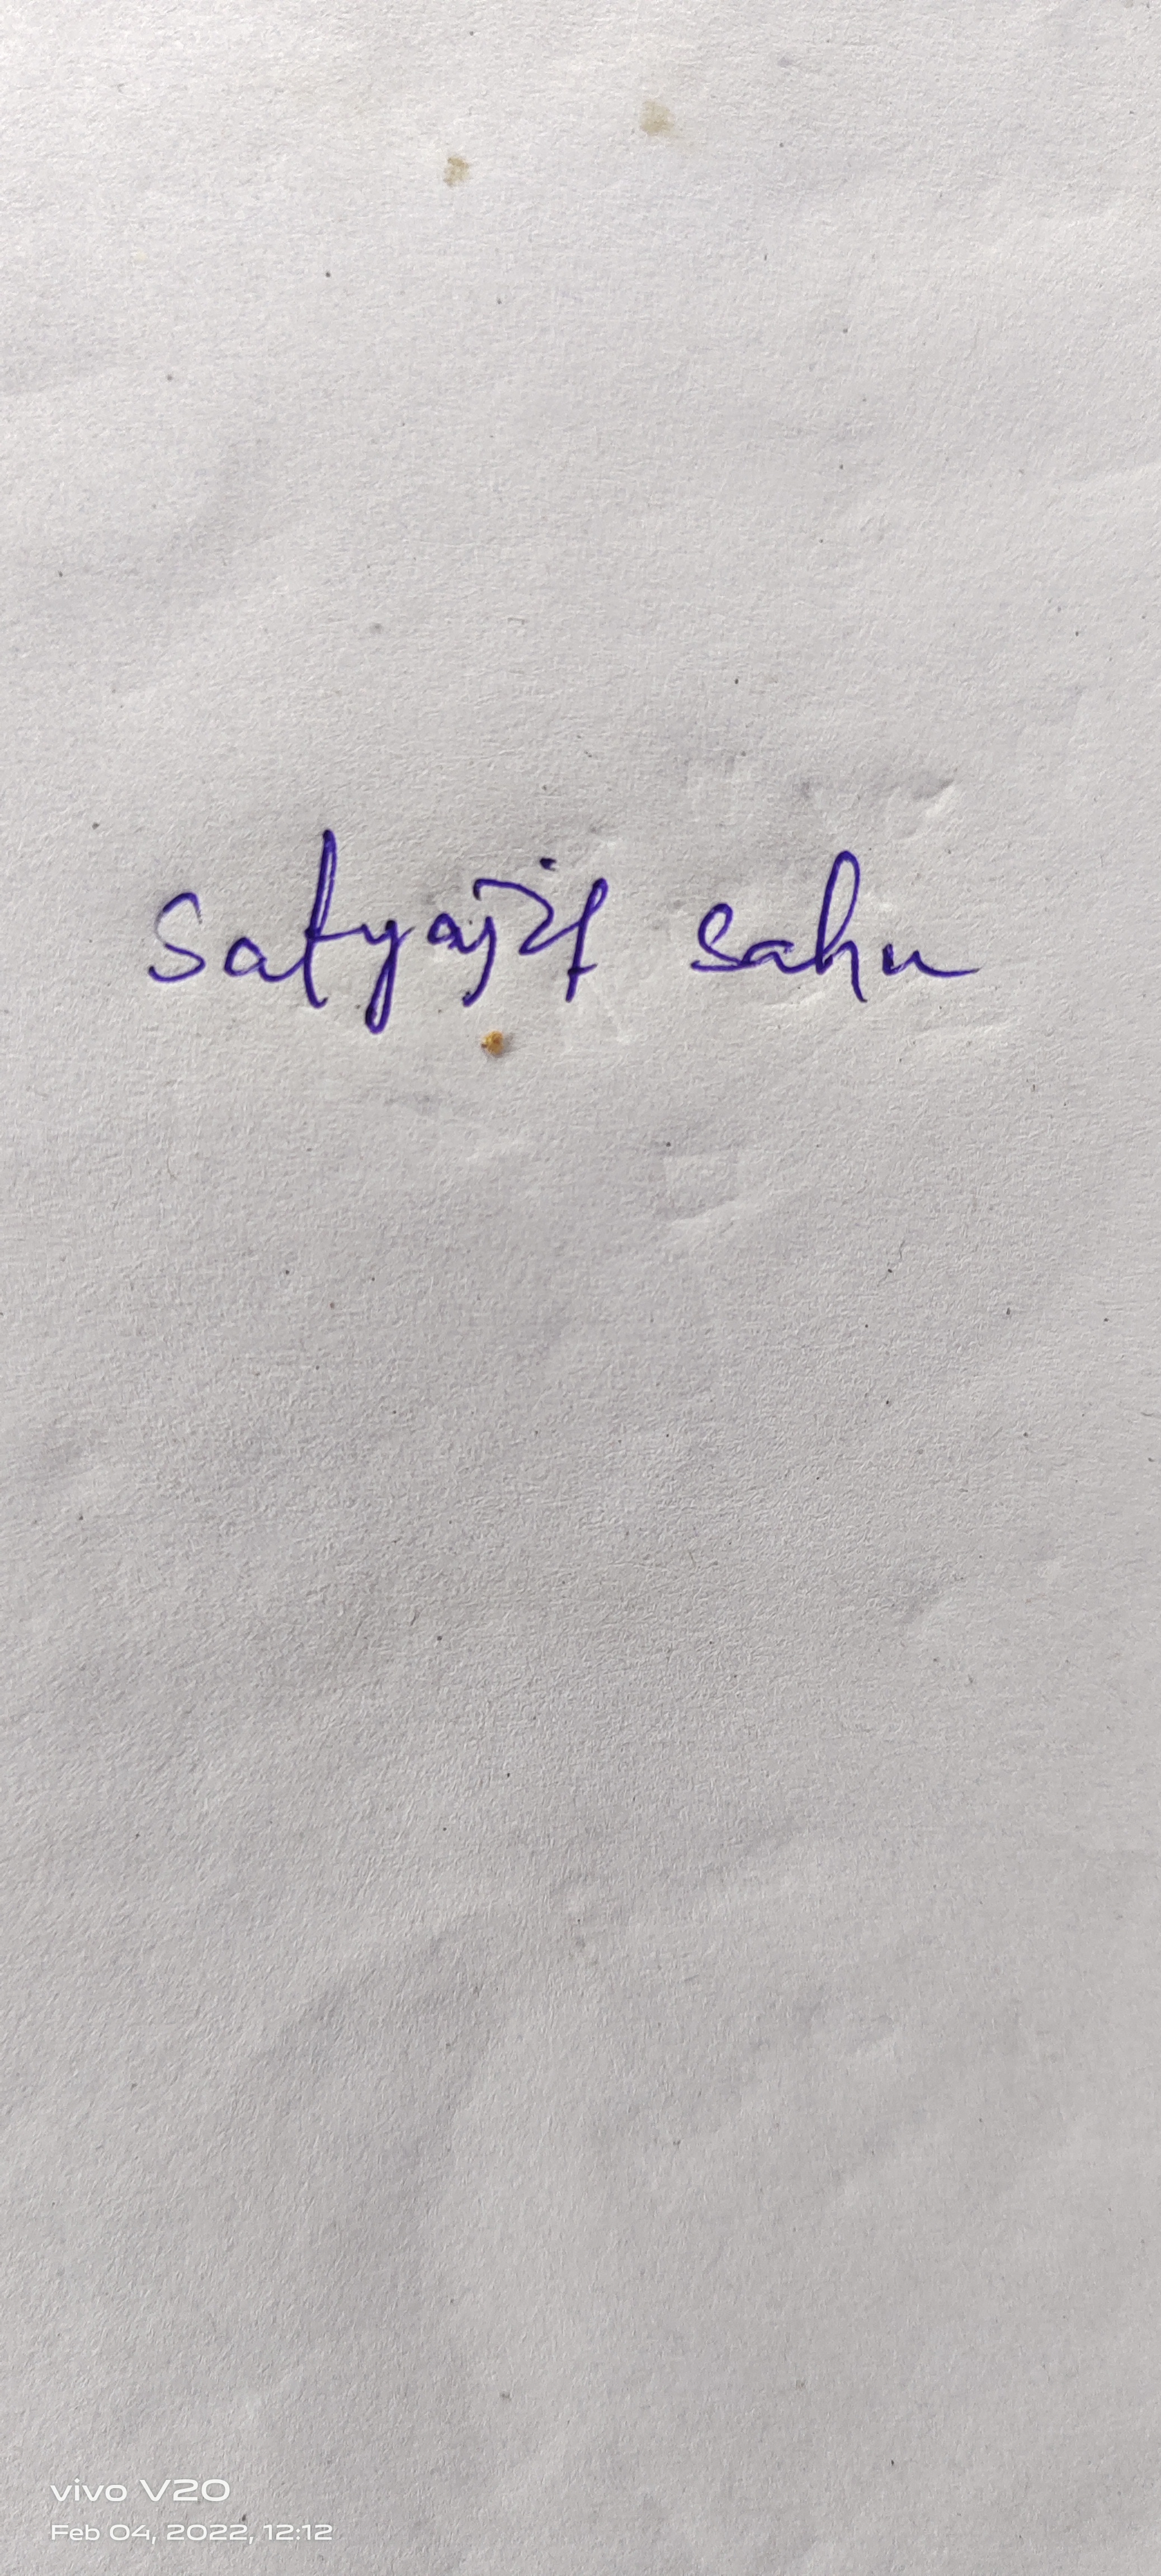 satyajit sahu
vivo V20
Feb 04, 2022, 12:12